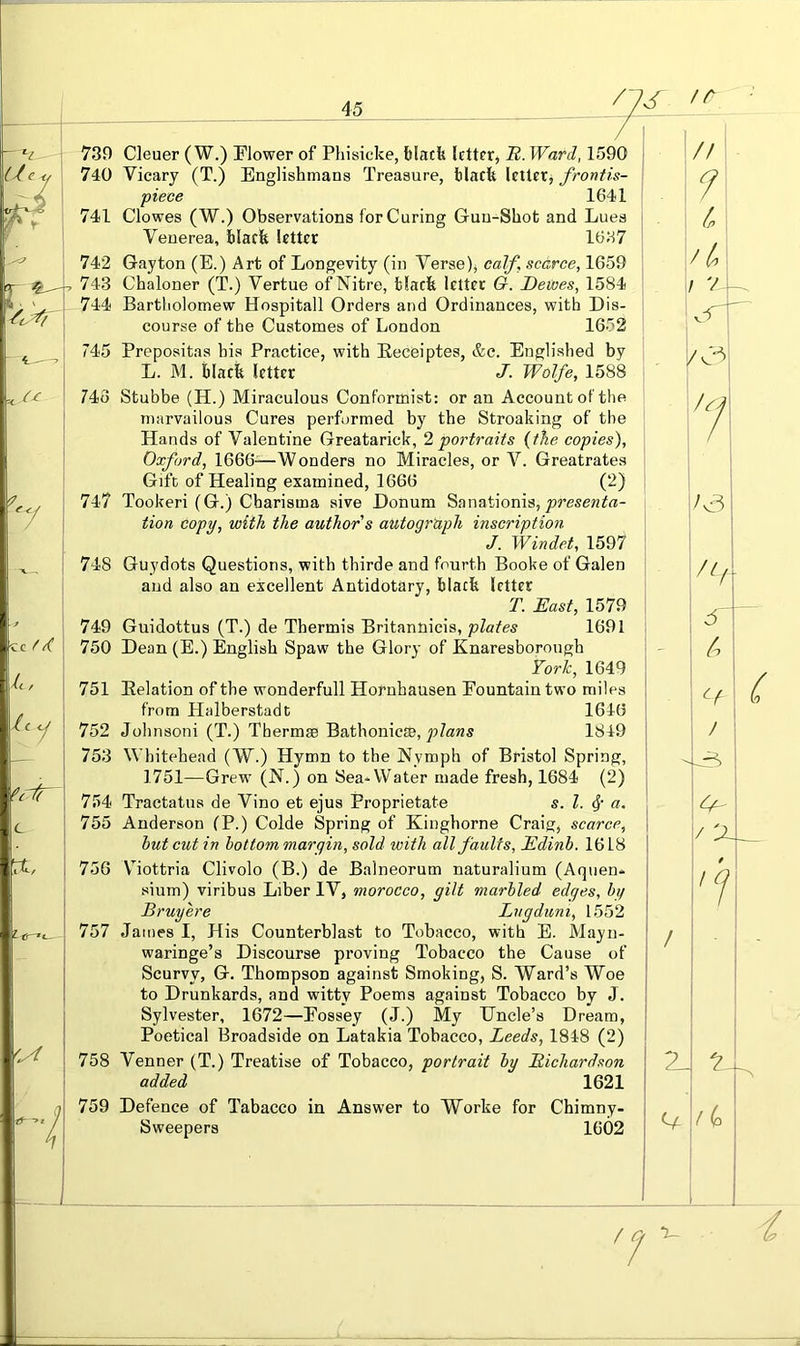 45
739 Cleuer (W.) Flower of Phisicke, black letter, R. Ward, 1590
740 Vicary (T.) Englishmans Treasure, black letter, frontis-
piece 1641
741 Clowes (W.) Observations for Curing Gun-Shot and Lues
Venerea, black letter 1637
742 Gayton (E.) Art of Longevity (in Verse), calf, scarce, 1659
743 Chaloner (T.) Vertue of Nitre, black letter G. Dewes, 1584
744 Bartholomew Hospitall Orders and Ordinances, with Dis-
course of the Customes of London 1652
745 Prepositas his Practice, with Receiptes, &c. Englished by
L. M. black letter J. Wolfe, 1588
746 Stubbe (H.) Miraculous Conformist: or an Account of the
marvailous Cures performed by the Stroaking of the
Hands of Valentine Greatarick, 2 portraits (the copies),
Oxford, 1666—Wonders no Miracles, or V. Greatrates
Gift of Healing examined, 1666 (2)
747 Tookeri (G.) Charisma sive Donum Sanationis, presenta-
tion copy, with the author's autograph inscription
J. Windet, 1597
748 Guydots Questions, with thirde and fourth Booke of Galen
and also an excellent Antidotary, black letter
T. East, 1579
749 Guidottus (T.) de Thermis Britannicis, plates 1691
750 Dean (E.) English Spaw the Glory of Knaresborough
York, 1649
751 Relation of the wonderfull Hornhausen Fountain two miles
from Halberstadt 1646
752 Johnsoni (T.) Thermæ Bathonicæ, plans 1849
753 Whitehead (W.) Hymn to the Nymph of Bristol Spring,
1751—Grew (N.) on Sea-Water made fresh, 1684 (2)
754 Tractatus de Vino et ejus Proprietate s. l. & a.
755 Anderson (P.) Colde Spring of Kinghorne Craig, scarce,
but cut in bottom margin, sold with all faults, Edinb. 1618
756 Viottria Clivolo (B.) de Balneorum naturalium (Aquen-
sium) viribus Liber IV, morocco, gilt marbled edges, by
Bruyère Lugduni, 1552
757 James I, His Counterblast to Tobacco, with E. Mayn-
waringe's Discourse proving Tobacco the Cause of
Scurvy, G. Thompson against Smoking, S. Ward's Woe
to Drunkards, and witty Poems against Tobacco by J.
Sylvester, 1672—Fossey (J.) My Uncle's Dream,
Poetical Broadside on Latakia Tobacco, Leeds, 1848 (2)
758 Venner (T.) Treatise of Tobacco, portrait by Richardson
added 1621
759 Defence of Tabacco in Answer to Worke for Chimny-
Sweepers 1602